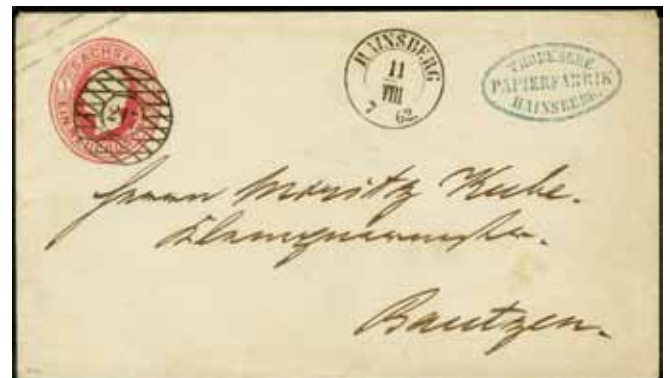 SACHSEN
HAINSBERG
11
VIII
7 62
THODE'SCHE
PAPIERFABRIK
HAINSBERG.
Herrn Moritz Kube.
Bautzen.